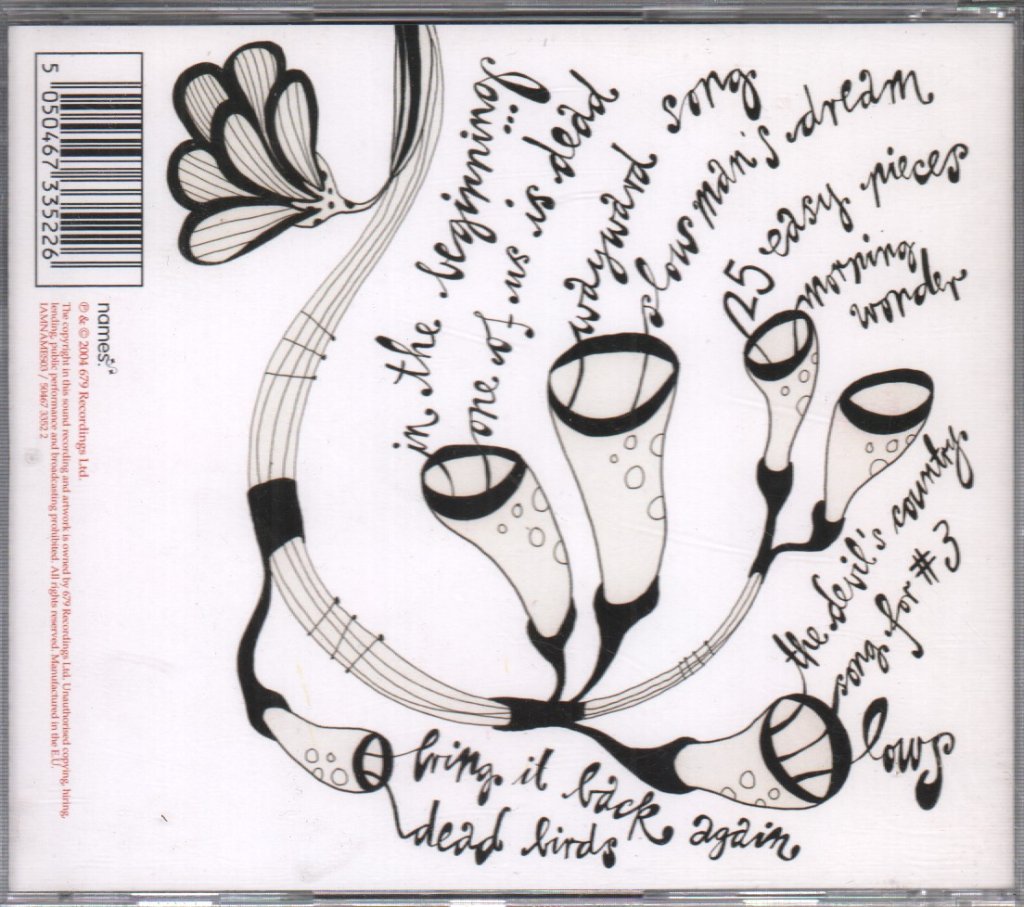 in the beginning...
one of us is dead
wayward song
slow man's dream
25 easy pieces
morning
wonder
the devil's country
song for #3
lows
bring it back again
dead birds
5 050467 335226
names.
℗ & © 2004 679 Recordings Ltd.
The copyright in this sound recording and artwork is owned by 679 Recordings Ltd. Unauthorised copying, hiring,
lending, public performance and broadcasting prohibited. All rights reserved. Manufactured in the E.U.
IAMNAMES03 / 50467 3352 2